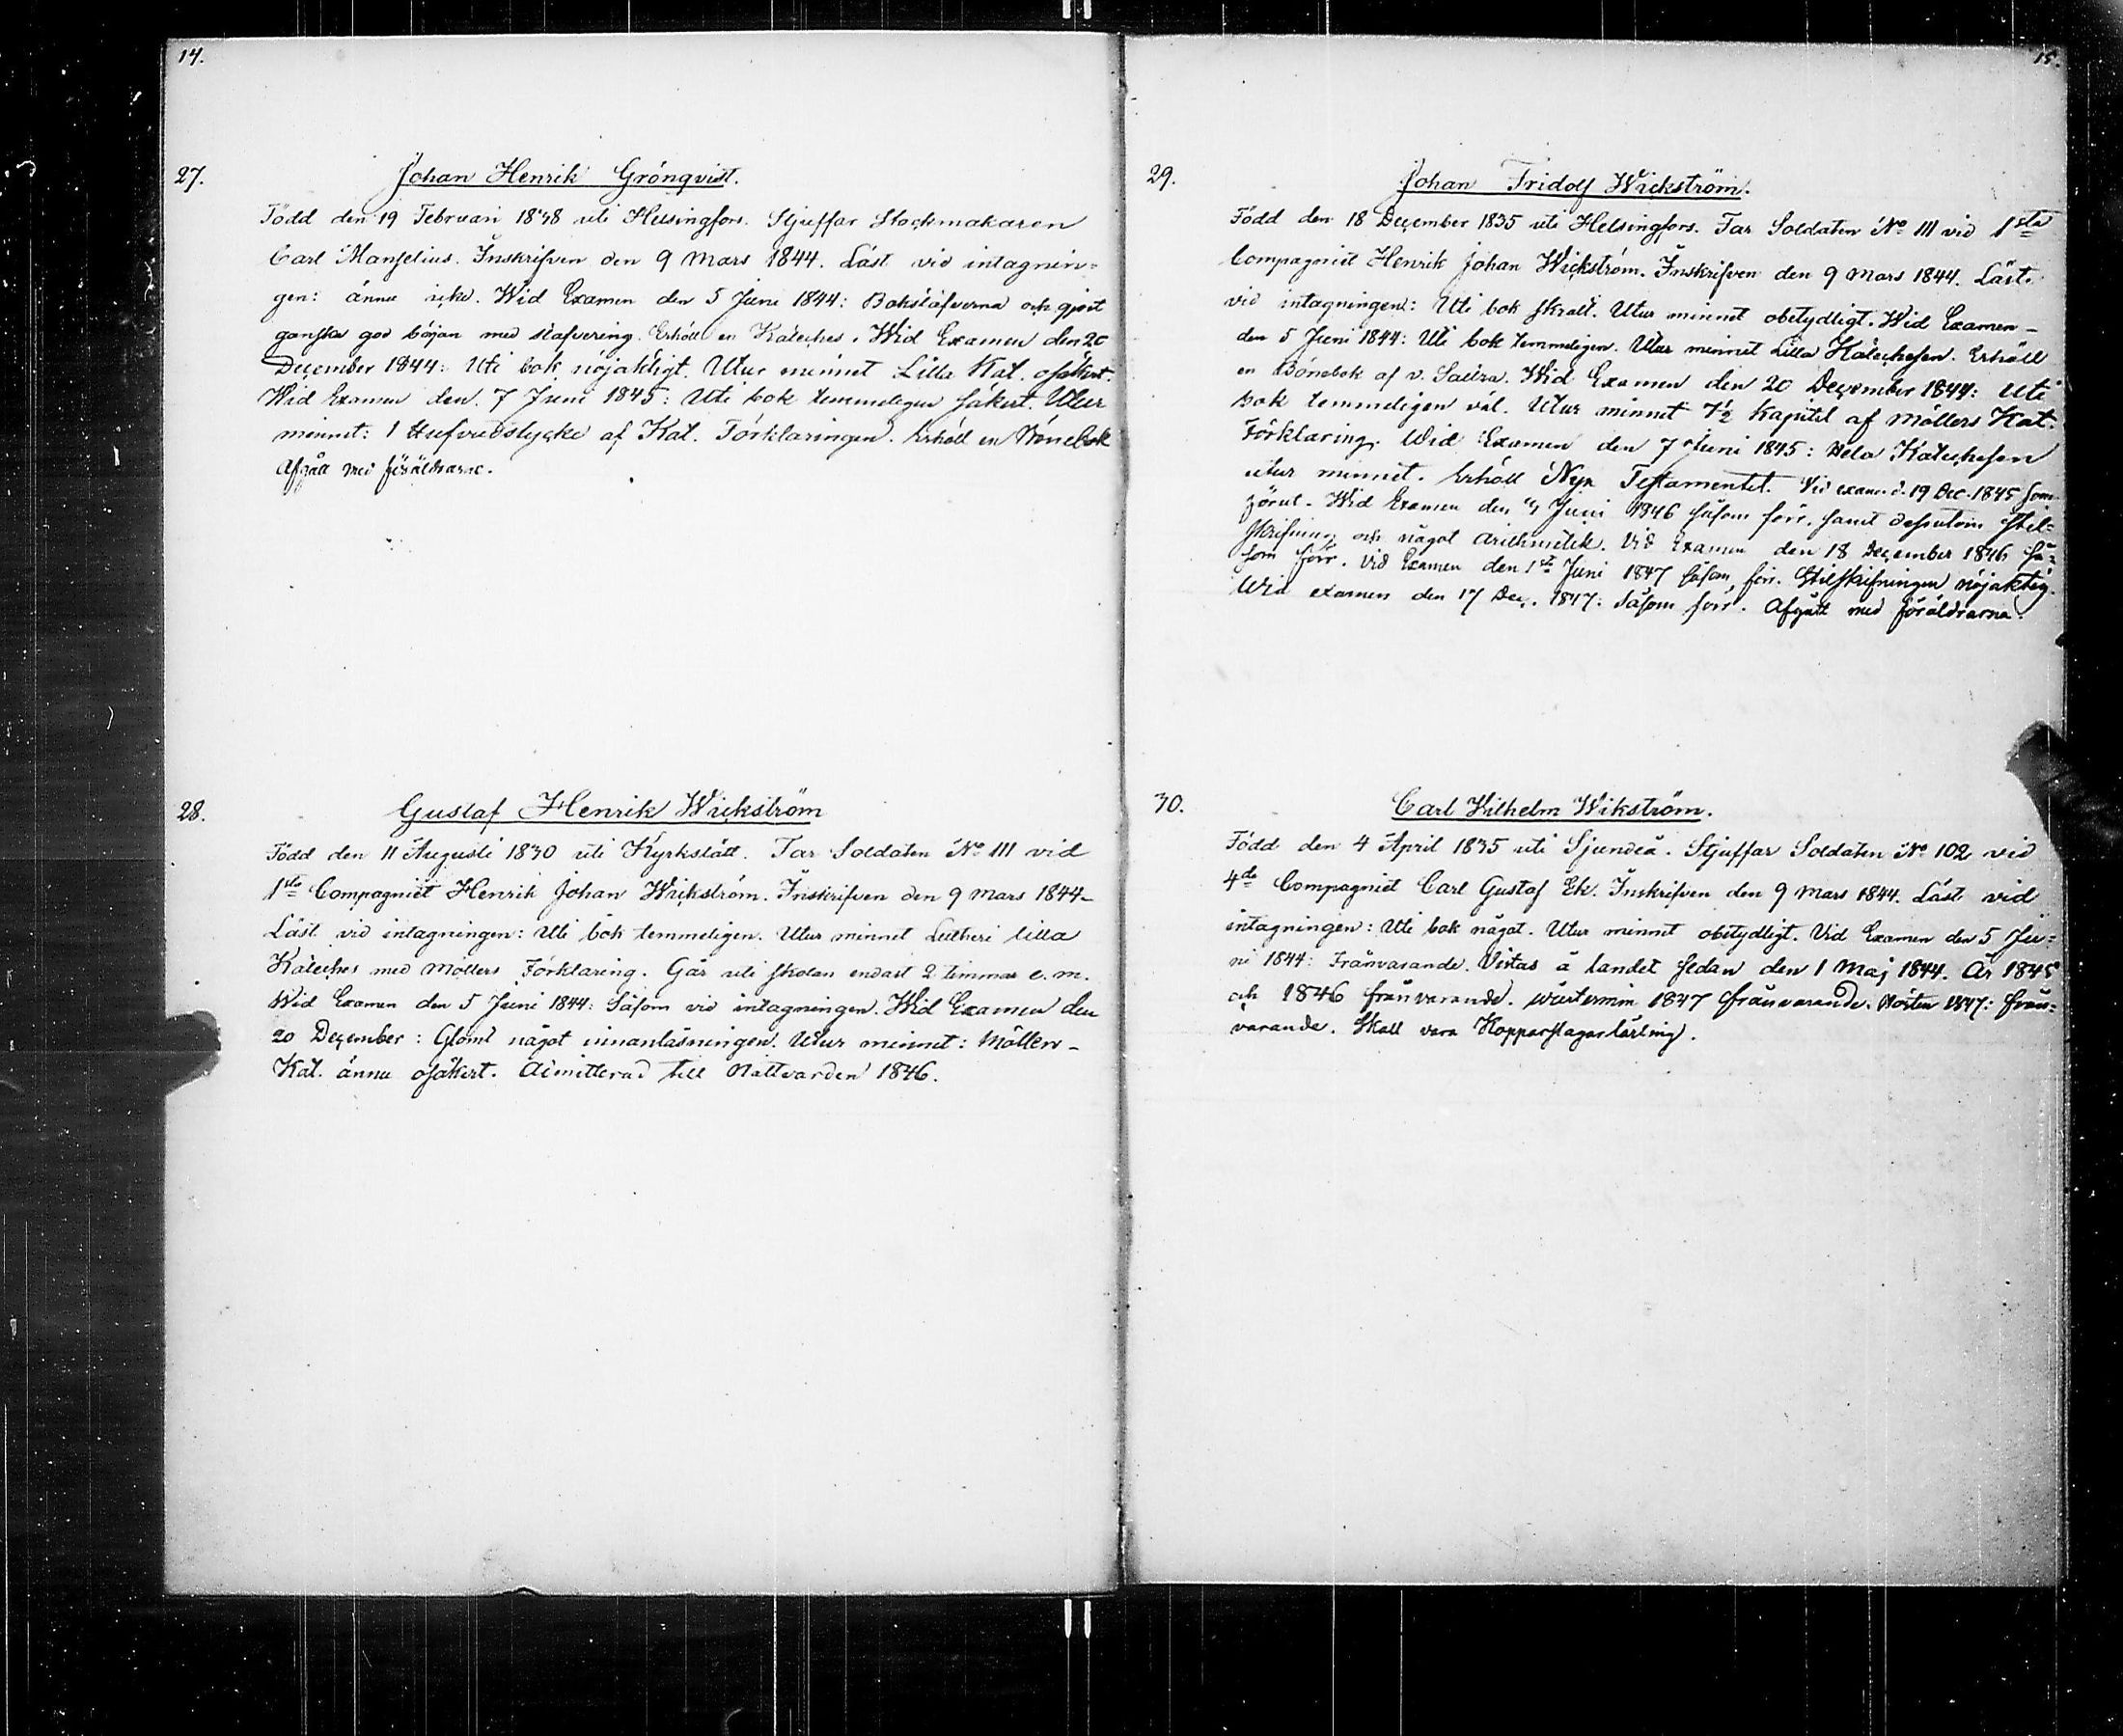 14.
27.
Johan Henrik Grönqvist.
Född den 19 Februari 1838 uti Helsingfors. Stjuffar Stockmakaren
Carl Manselius. Inskrifven den 9 Mars 1844. Läst vid intagnin=
gen: ännu icke. Wid Examen den 5 Juni 1844: Bokstäfverna och gjort
ganska god början med stafvering. Erhöll en Kateches. Wid Examen den 20
December 1844: Uti bok nöjaktigt. Utur minnet Lilla Kat. osäkert.
Wid Examen den 7 Juni 1845: Uti bok temmeligen säkert. Utur
minnet: 1 Hufvudstycke af Kat. Förklaringen. Erhöll en Bönebok
Afgått med föräldrarne.
28.
Gustaf Henrik Wickström
Född den 11 Augusti 1830 uti Kyrkslätt. Far Soldaten No 111 vid
1sta Compagniet Henrik Johan Wickström. Inskrifven den 9 Mars 1844-
Läst vid intagningen: Uti bok temmeligen. Utur minnet Lutheri lilla
Kateches med Möllers Förklaring. Går uti skolan endast 2 timmar e. m.
Wid Examen den 5 Juni 1844: Såsom vid intagningen. Wid Examen den
20 December: Glömt något innanläsningen. Utur minnet: Möllers-
Kat. ännu osäkert. Admitterad till Nattvarden 1846.
15.
29.
Johan Fridolf Wickström.
Född den 18 December 1835 uti Helsingfors. Far Soldaten No 111 vid 1sta
Compagniet Henrik Johan Wickström. Inskrifven den 9 Mars 1844. Läst
vid intagningen: Uti bok skralt. Utur minnet obetydligt. Wid Examen-
den 5 Juni 1844: Uti bok temmeligen. Utur minnet Lilla Katechesen. Erhöll
en Bönebok af v. Saltza. Wid Examen den 20 December 1844: Uti
bok temmeligen väl. Utur minnet 7½ Kapitel af Möllers Kat.
Förklaring. Wid Examen den 7 Juni 1845: Hela Katechesen
utur minnet. Erhöll Nya Testamentet. Vid exam. d. 19 Dec. 1845 som
förut. Wid Examen den Juni 1846 såsom förr, samt dessutom stil=
skrifning och något arithmetik. Vid Examen den 18 December 1846 så=
som förr. Vid Examen den 1sta Juni 1847 såsom förr. Stilskrifningen nöjaktig.
Wid examen den 17 Dec. 1847: Såsom förr. Afgått med föräldrarna.
30.
Carl Wilhelm Wikström.
Född den 4 April 1835 uti Sjundeå. Stjuffar Soldaten No 102 vid
4de Compagniet Carl Gustaf Ek. Inskrifven den 9 Mars 1844. Läst vid
intagningen: Uti bok något. Utur minnet obetydligt. Vid Examen den 5 Ju=
ni 1844: Frånvarande. Vistas å landet sedan den 1 Maj 1844. År 1845
och 1846 frånvarande. Wårtermin 1847 frånvarande. Hösten 1847: från=
varande. Skall vara Kopparslagarlärling.